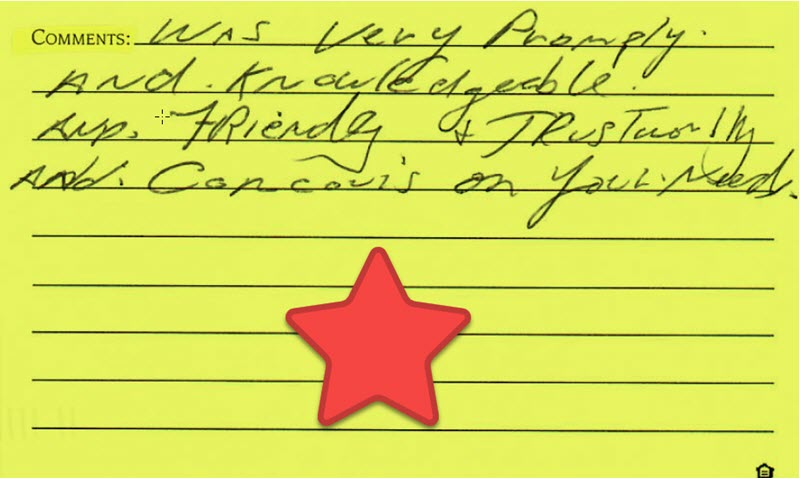 COMMENTS: Was Very Promply.
And. Knowledgeable.
And. Friendly + Trustworthy
And. Concouis on Your. Needs.